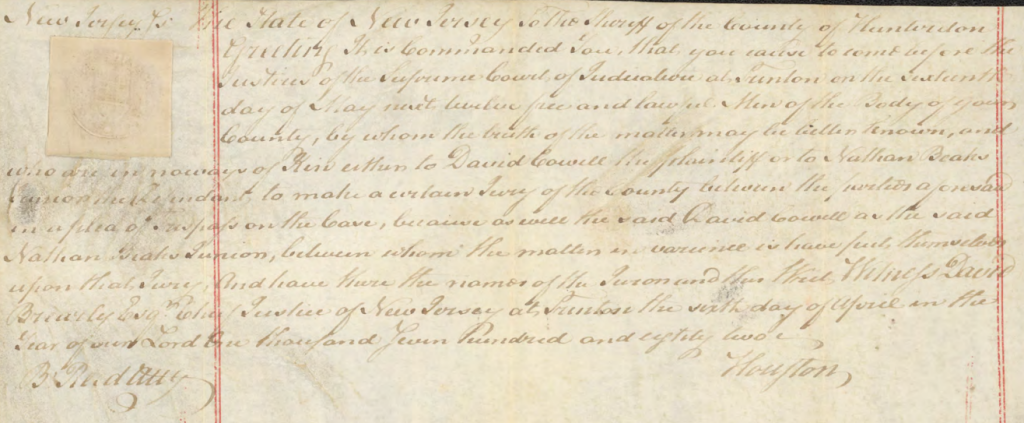 New Jersey, ss The State of New Jersey to the Sheriff of the County of Hunterdon
Greeting This Commanded You, that you cause to come before the
Justices of the Supreme Court of Judicature at Trenton on the sixteenth
day of May next twelve free and lawful Men of the Body of your
County, by whom the truth of the matter may be better known, and
who are in noways of Kin either to David Cowell the plaintiff or to Nathan Beaks
Junior the Defendant to make a certain Jury of the County between the parties aforesaid
in a plea of Trespass on the Case, because as well the said David Cowell as the said
Nathan Beaks Junior, between whom the matter in variance is have put themselves
upon that Jury, And have there the names of the Jurors and this Writ, Witness David
Brearly Esqr. Chief Justice of New Jersey at Trenton the sixth day of April in the
Year of our Lord One thousand Seven Hundred and eighty two
B. Reed Atty Houston